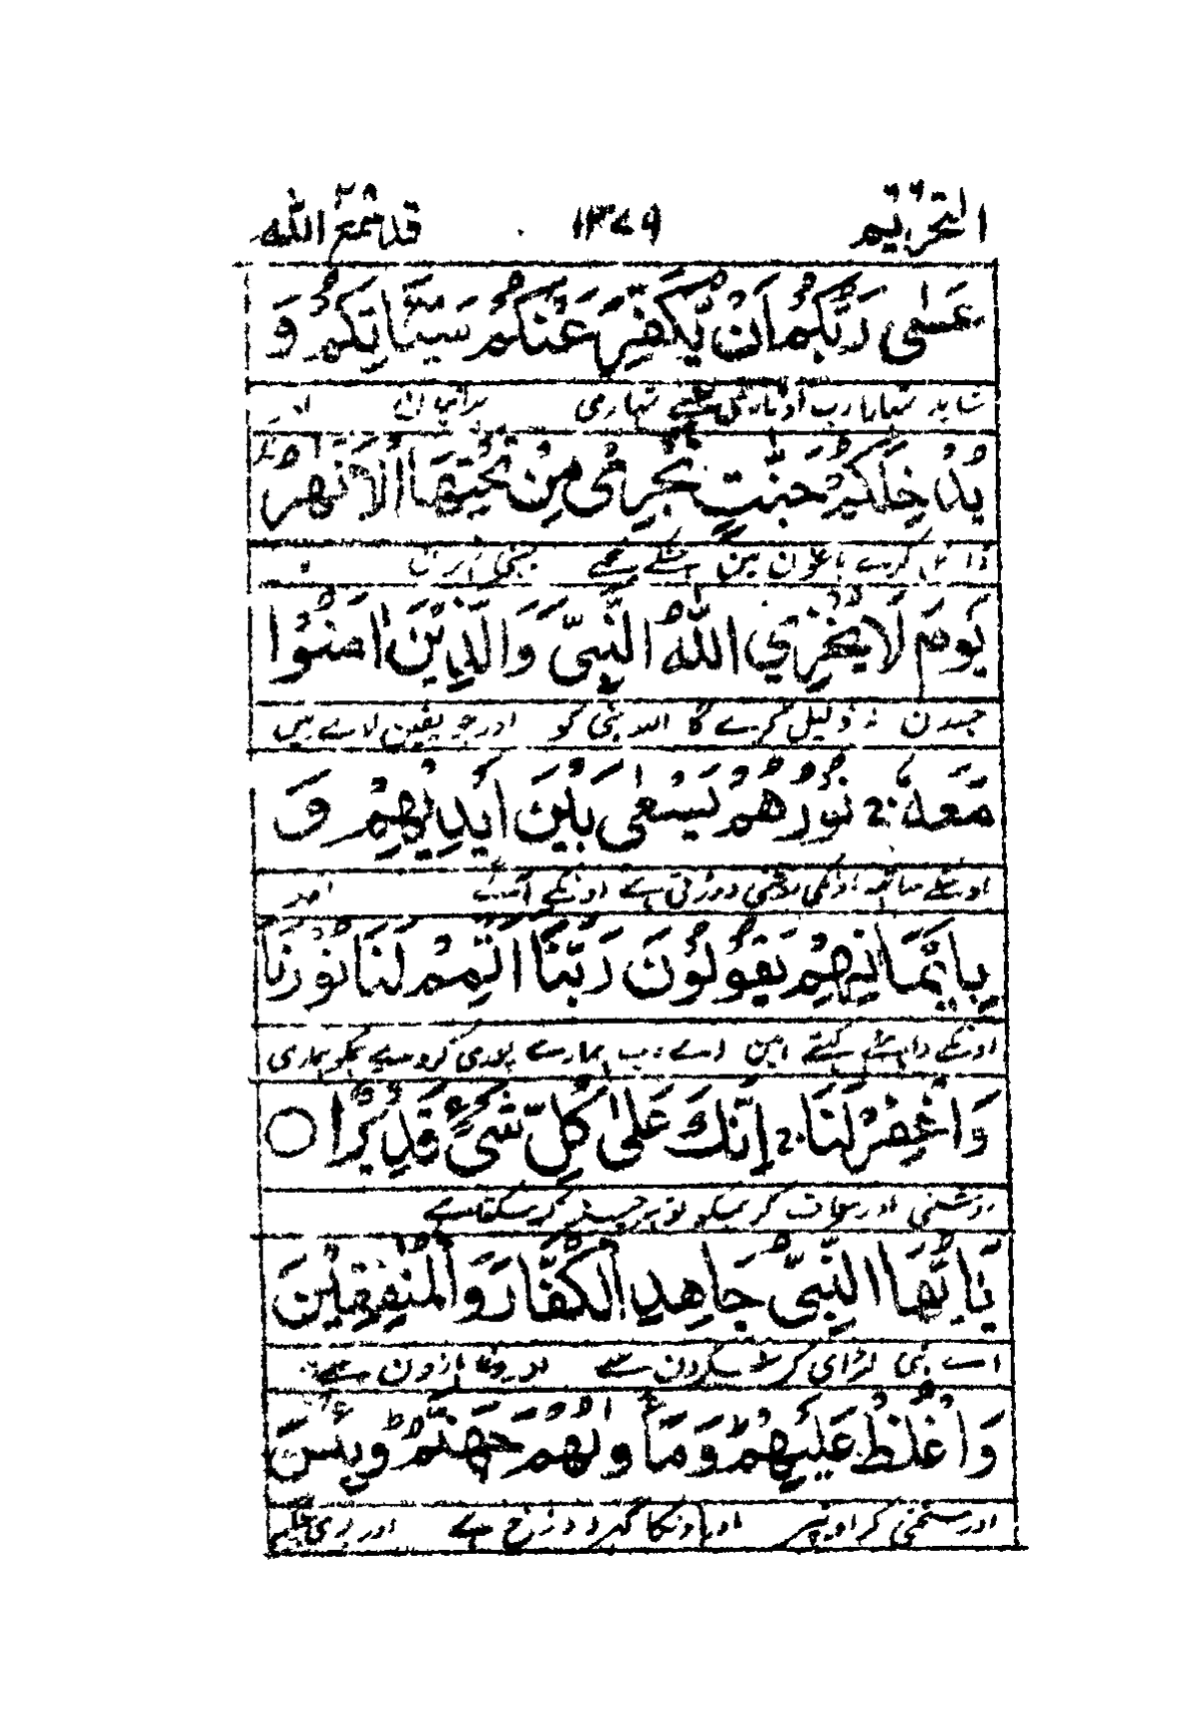 التحریم ١٣٧٩ قد سمع الله ٢٨
عَسٰى رَبُّكُمْ اَنْ يُّكَفِّرَ عَنْكُمْ سَيِّاٰتِكُمْ وَ
شاید تمہارا رب اوتار تمہاری برائیان اور
يُدْخِلَكُمْ جَنّٰتٍ تَجْرِىْ مِنْ تَحْتِهَا الْاَنْهٰرُ
داخل کرے باغون مین جنکے نیچے بہتی نہرین
يَوْمَ لَا يُخْزِى اللّٰهُ النَّبِىَّ وَالَّذِيْنَ اٰمَنُوْا
جسدن نہ ذلیل کرے گا اللہ نبی کو اور جو یقین لائے ہیں
مَعَهٗ ۚ نُوْرُهُمْ يَسْعٰى بَيْنَ اَيْدِيْهِمْ وَ
اوسکے ساتھ اونکی روشنی دوڑتی ہے اونکے آگے اور
بِاَيْمَانِهِمْ يَقُوْلُوْنَ رَبَّنَا اَتْمِمْ لَنَا نُوْرَنَا
اونکے داہنے کہتے ہین اے رب ہمارے پوری کردے ہمکو ہماری
وَاغْفِرْ لَنَا ۚ اِنَّكَ عَلٰى كُلِّ شَىْءٍ قَدِيْرٌ ○
روشنی اور معاف کر ہمکو تو ہر چیز کرسکتا ہے
يٰاَيُّهَا النَّبِىُّ جَاهِدِ الْكُفَّارَ وَالْمُنٰفِقِيْنَ
اے نبی لڑائی کر منکرون سے اور دغابازون سے
وَاغْلُظْ عَلَيْهِمْ وَمَاْوٰىهُمْ جَهَنَّمُ وَبِئْسَ
اور سختی کر اونپر اور اونکا گھر دوزخ ہے اور بری جگہہ